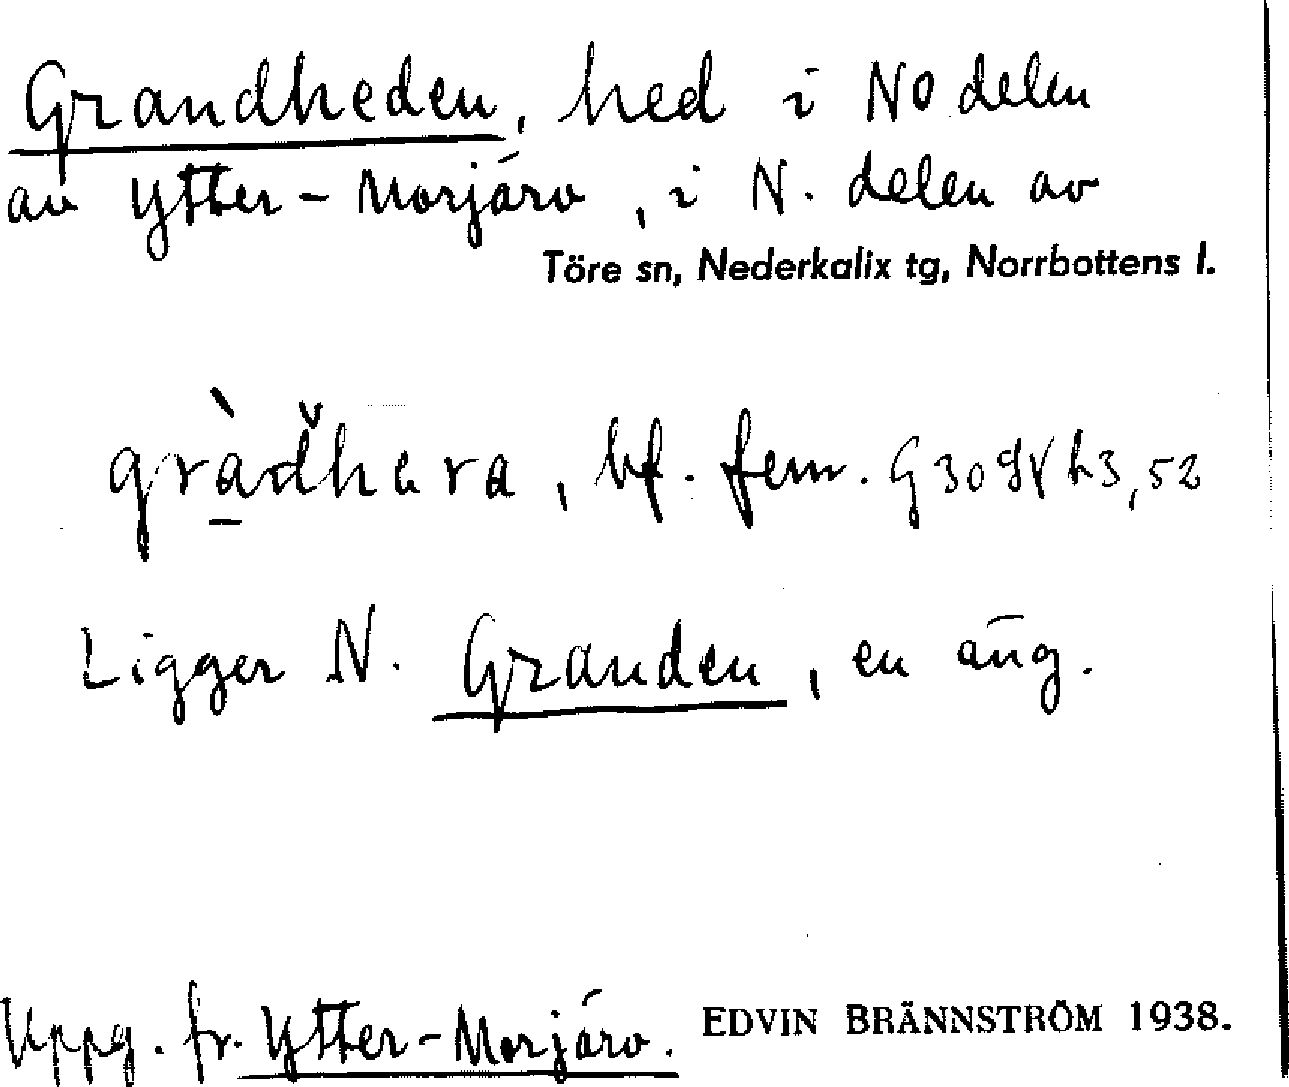 Grandheden, hed i NO delen
av Ytter-Morjärv, i N. delen av
Töre sn, Nederkalix tg, Norrbottens l.
bf. fem.
Ligger N. Granden, en äng.
Uppg. fr. Ytter-Morjärv. EDVIN BRÄNNSTRÖM 1938.